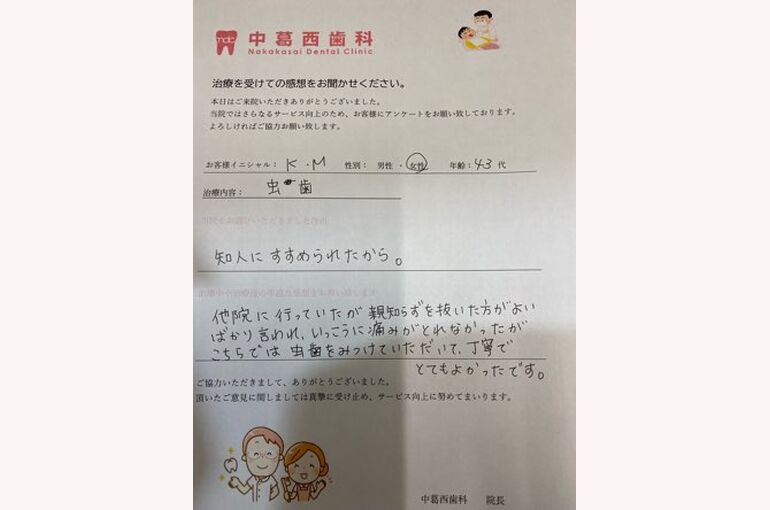 ndc
中葛西歯科
Nakakasai Dental Clinic
治療を受けての感想をお聞かせください。
本日はご来院いただきありがとうございました。
当院ではさらなるサービス向上のため、お客様にアンケートをお願い致しております。
よろしければご協力お願い致します。
お客様イニシャル： K . M 性別： 男性 ・ 女性 年齢：43 代
治療内容： 虫歯
当院をお選びいただきました理由
知人にすすめられたから。
治療中や治療後の率直な感想をお願い致します
他院に行っていたが親知らずを抜いた方がよい
ばかり言われ、いっこうに痛みがとれなかったが
こちらでは虫歯をみつけていただいて、丁寧で
とてもよかったです。
ご協力いただきまして、ありがとうございました。
頂いたご意見に関しましては真摯に受け止め、サービス向上に努めてまいります。
中葛西歯科 院長